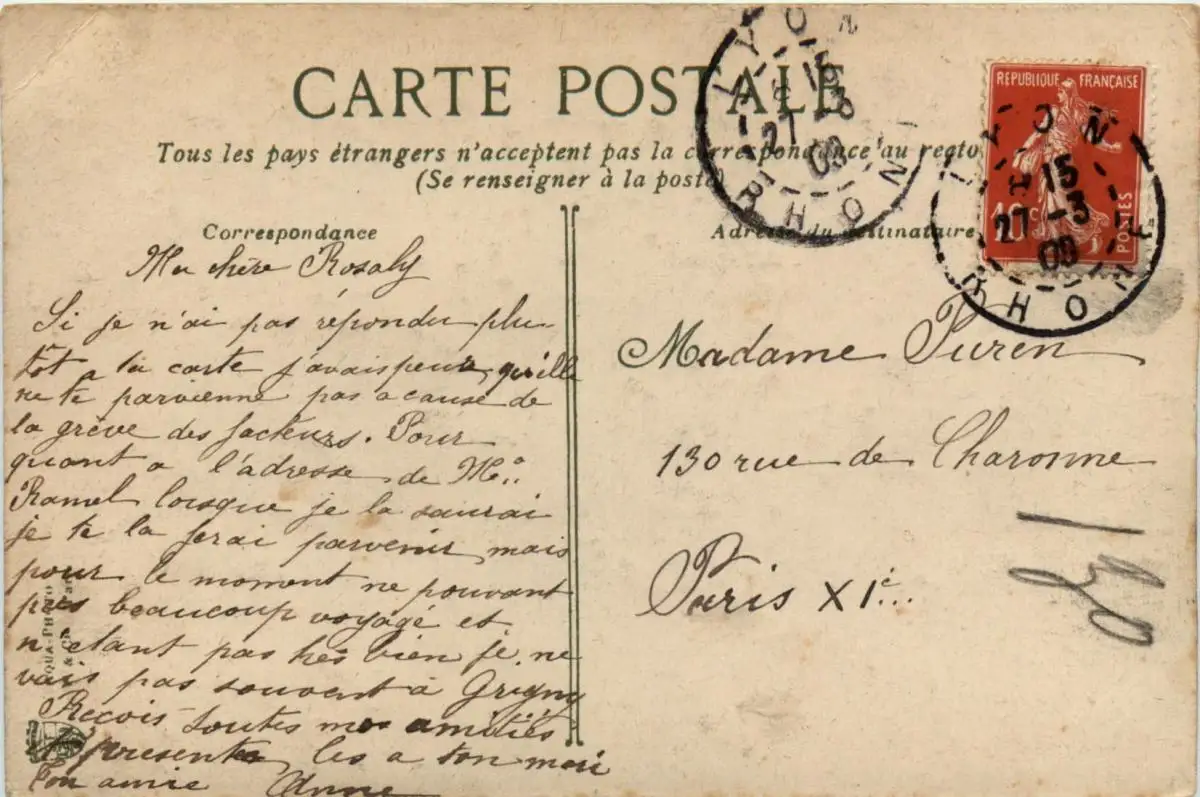 CARTE POSTALE
Tous les pays étrangers n'acceptent pas la correspondance au recto
(Se renseigner à la poste)
Correspondance
Ma chère Rosaly
Si je n'ai pas répondu plu
tôt a ta carte j'avais peur qu'elle
ne te parvienne pas a cause de
la grève des facteurs. Pour
quant a l'adresse de Me
Ramel lorsque je la saurai
je te la ferai parvenir mais
pour le moment ne pouvant
pas beaucoup voyagé et
n'etant pas très bien je ne
vais pas souvent à Grigny
Reçois toutes mes amitiés
et presente les a ton mari
Ton amie Anne
Adresse du destinataire
Madame Puren
130 rue de Charonne
Paris XIe
LYON
15
27-3
09
RHONE
REPUBLIQUE FRANÇAISE
10c
POSTES
LYON
15
27-3
09
RHONE